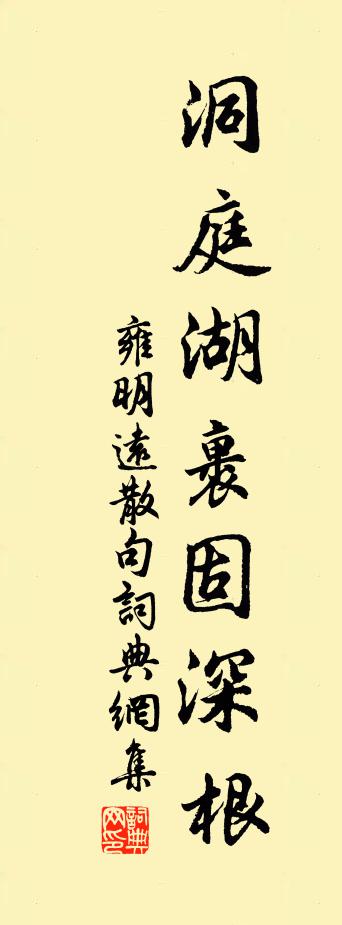 洞庭湖裏固深根
雍明遠散句詞典網集
詞典網印